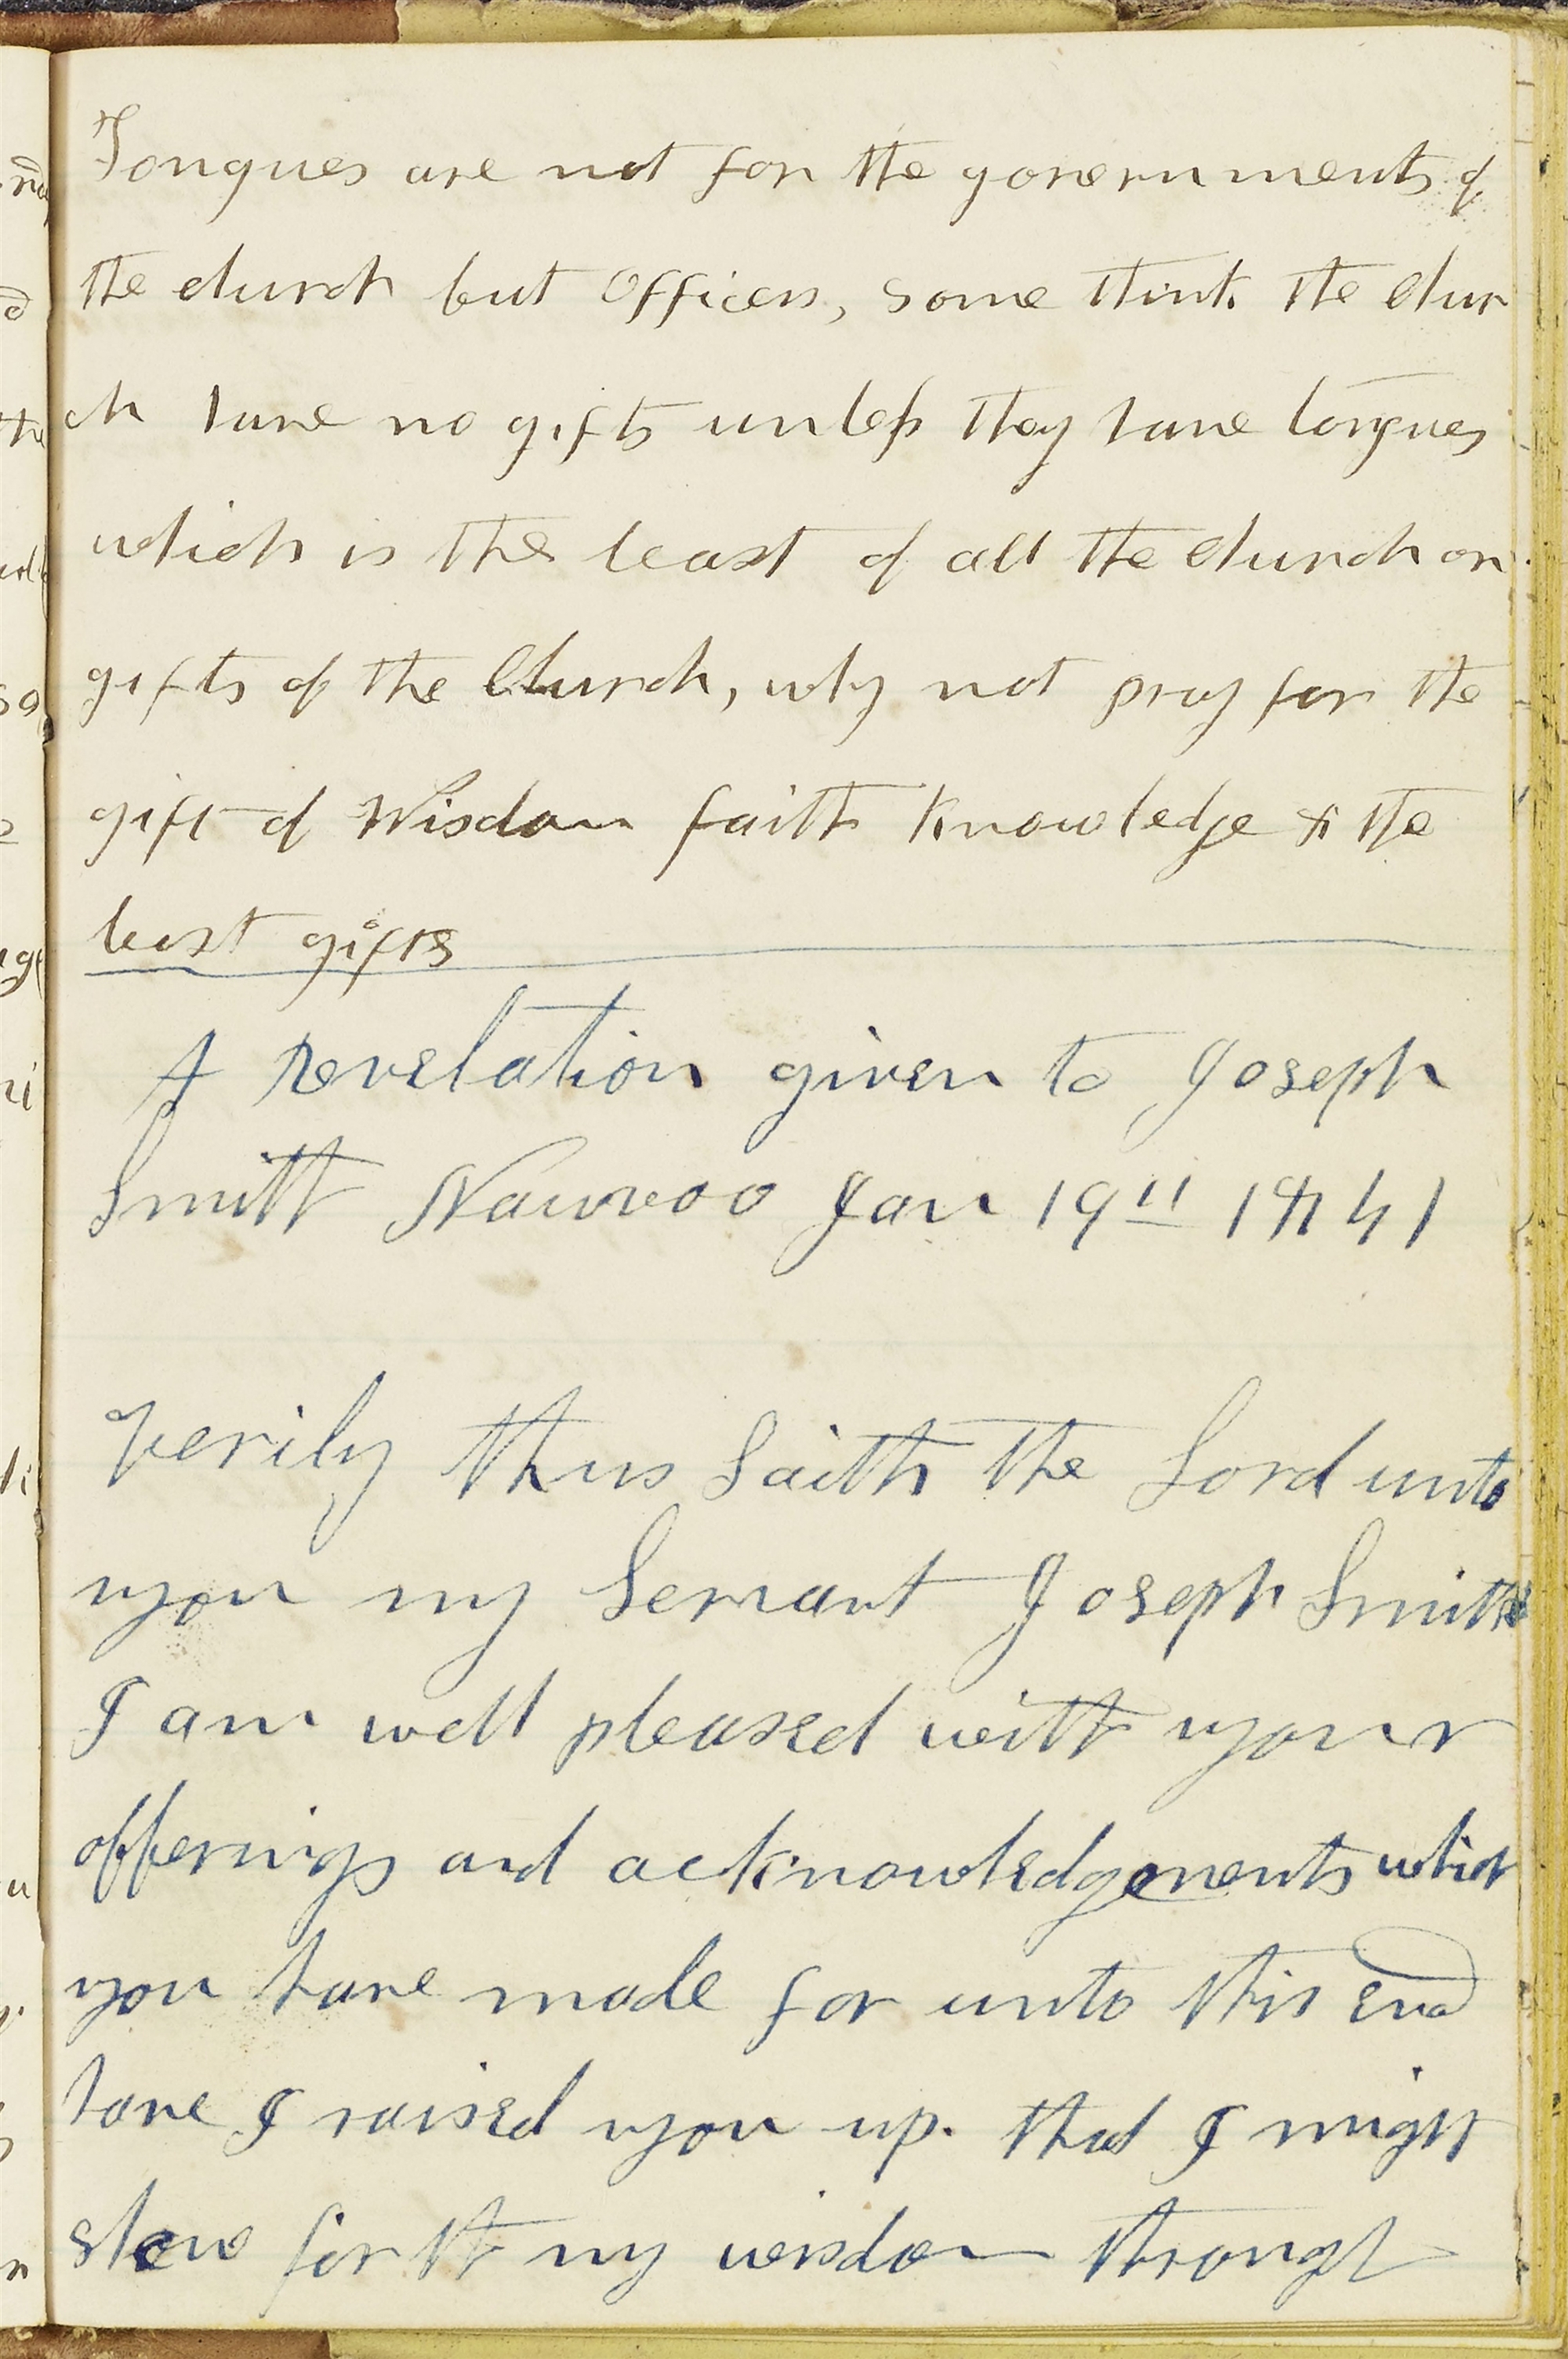 Tongues are not for the governments of
the church but Officers, some think the Chur
ch have no gifts unless they have tongues
which is the least of all the church or
gifts of the Church, why not pray for the
gift of Wisdom faith Knowledge & the
best gifts
A Revelation given to Joseph
Smith Nauvoo Jan 19 1841
Verily thus Saith the Lord unto
you my Servant Joseph Smith
I am well pleased with your
offerings and acknowledgements which
you have made for unto this end
have I raised you up. that I might
show forth my wisdom through